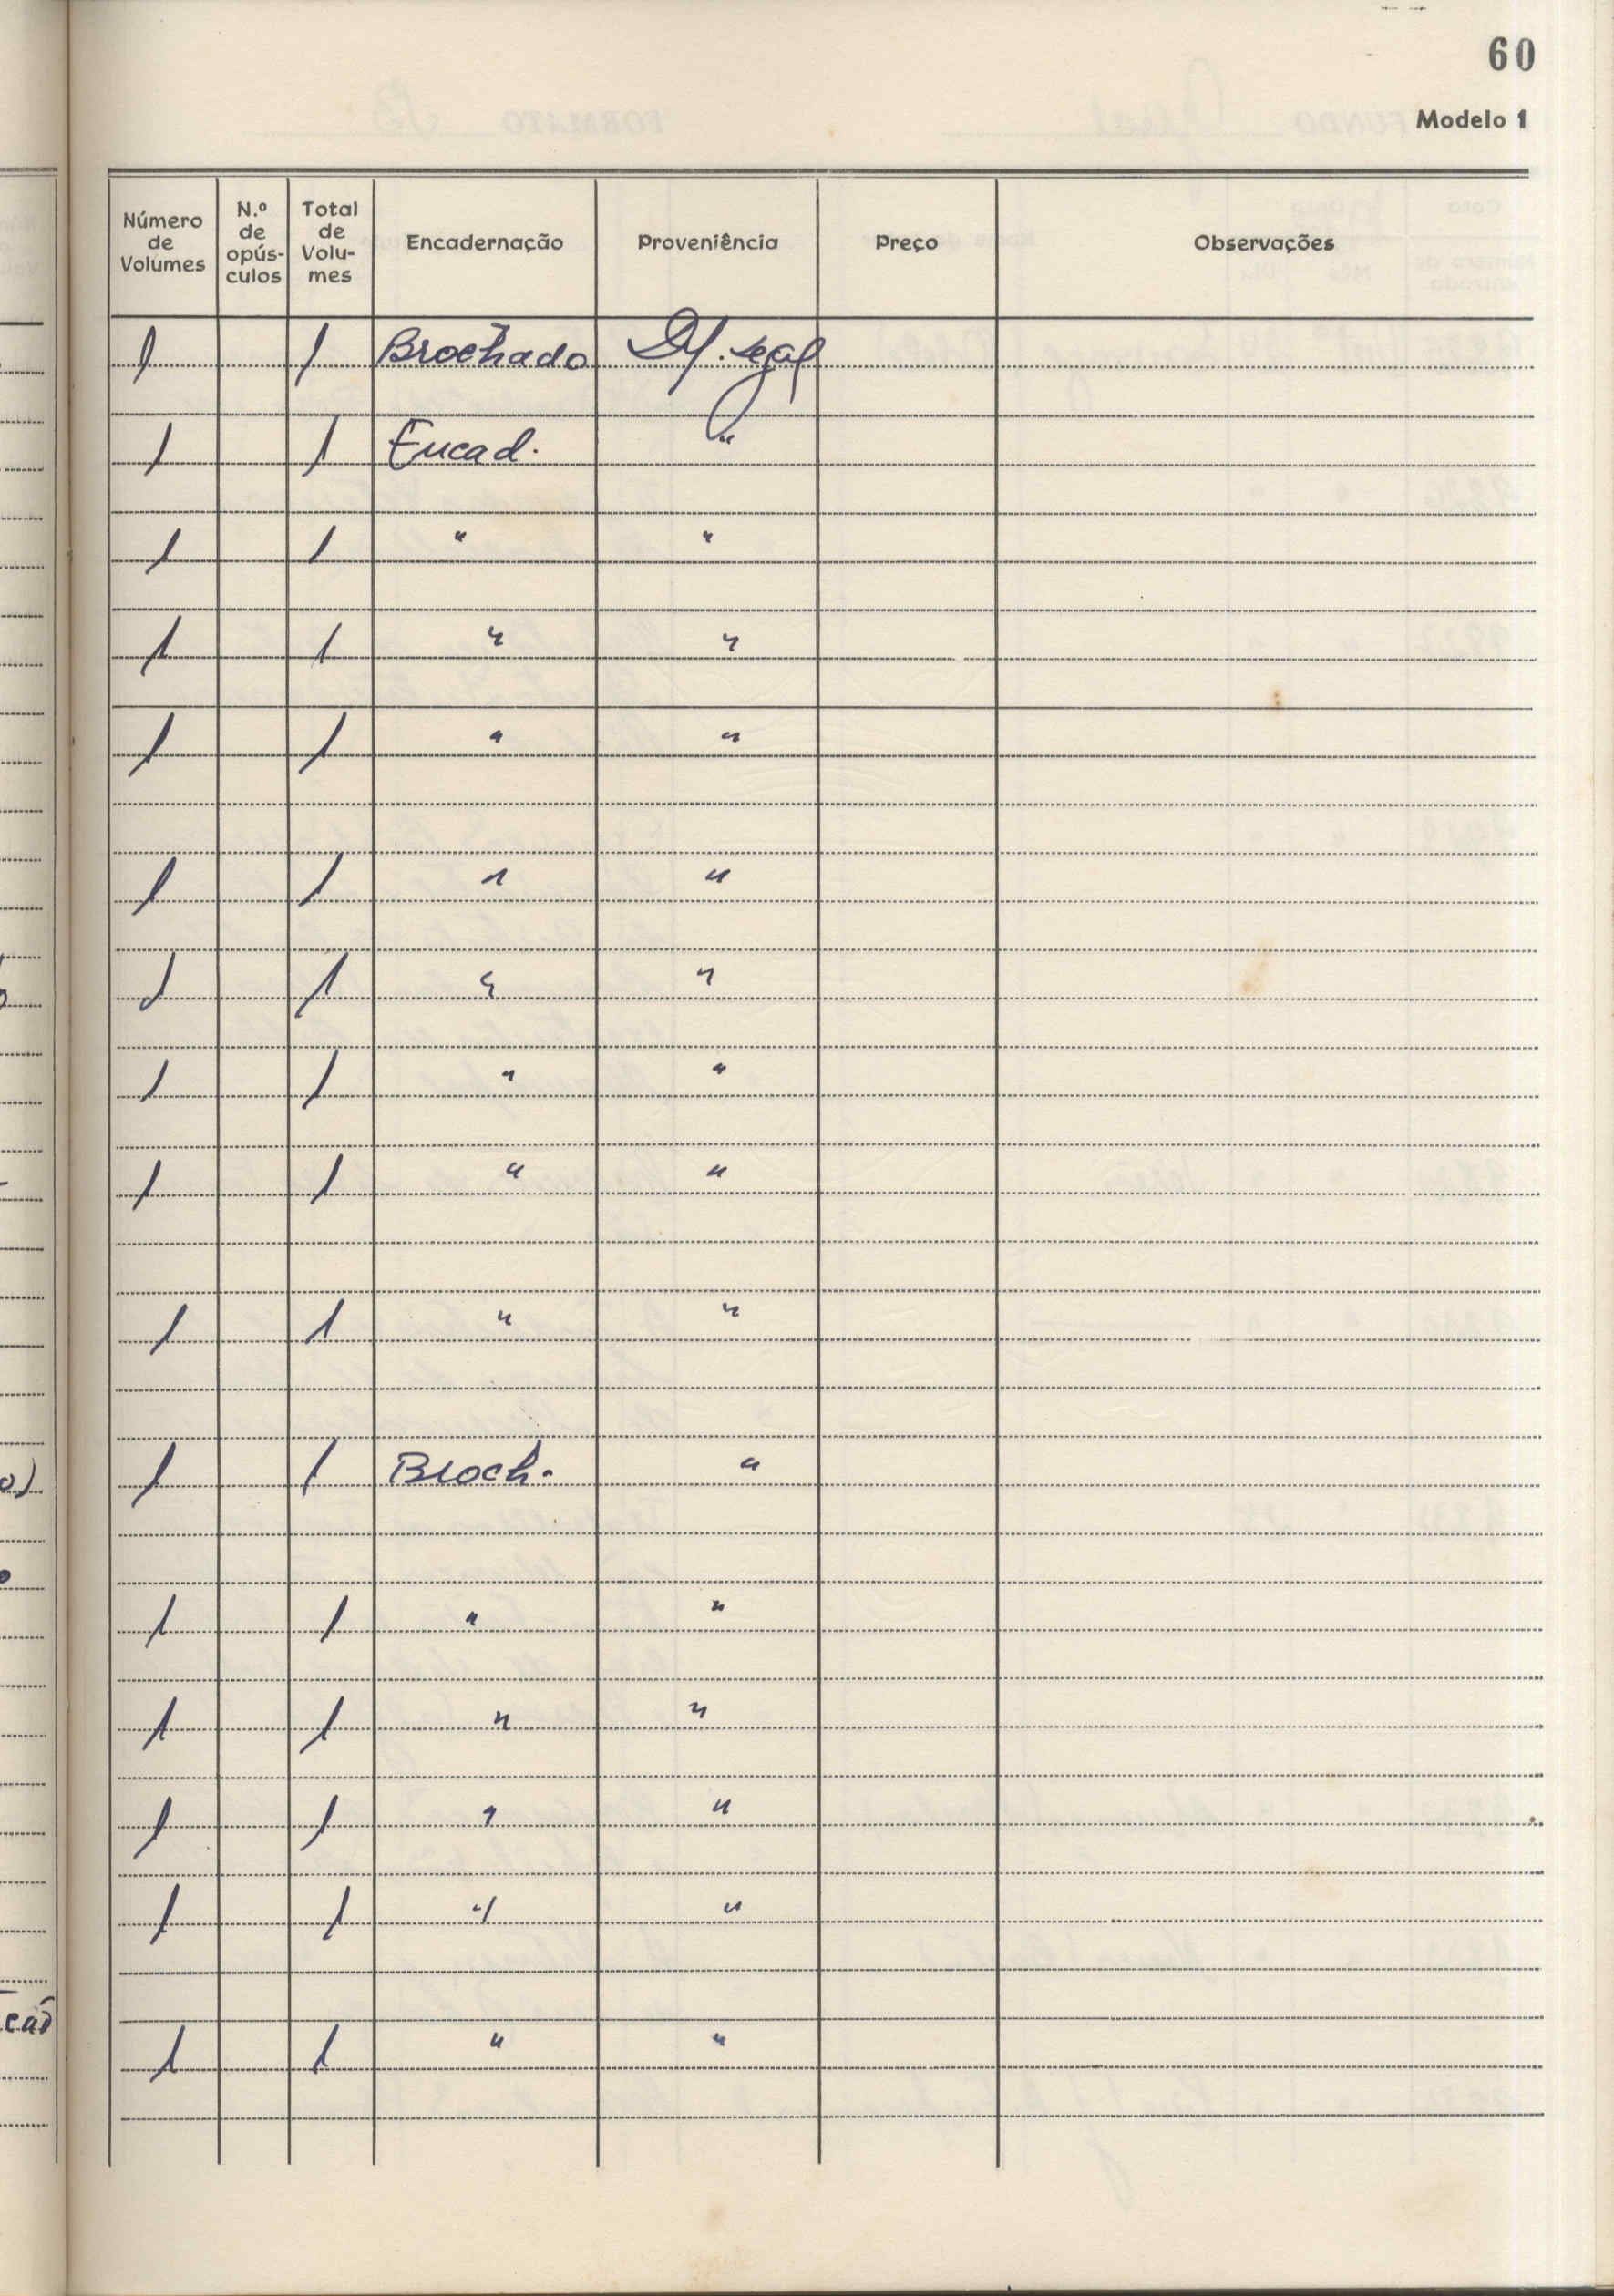 60
Modelo 1
Número de Volumes | N.º de opús-culos | Total de Volu-mes | Encadernação | Proveniência | Preço | Observações
1 | | 1 | Brochado | Dp. Legal
1 | | 1 | Encad. | "
1 | | 1 | " | "
1 | | 1 | " | "
1 | | 1 | " | "
1 | | 1 | " | "
1 | | 1 | " | "
1 | | 1 | " | "
1 | | 1 | " | "
1 | | 1 | " | "
1 | | 1 | Broch. | "
1 | | 1 | " | "
1 | | 1 | " | "
1 | | 1 | " | "
1 | | 1 | " | "
1 | | 1 | " | "